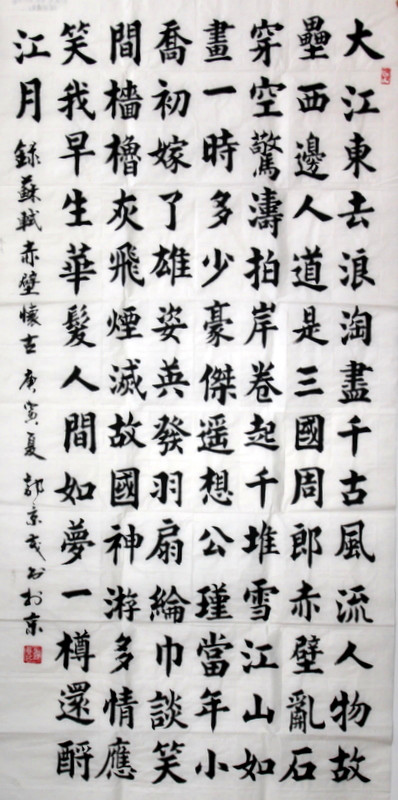 大江東去浪淘盡千古風流人物故
壘西邊人道是三國周郎赤壁亂石
穿空驚濤拍岸卷起千堆雪江山如
畫一時多少豪傑遥想公瑾當年小
喬初嫁了雄姿英發羽扇綸巾談笑
間檣櫓灰飛煙滅故國神游多情應
笑我早生華髮人間如夢一樽還酹
江月
錄蘇軾赤壁懷古庚寅夏